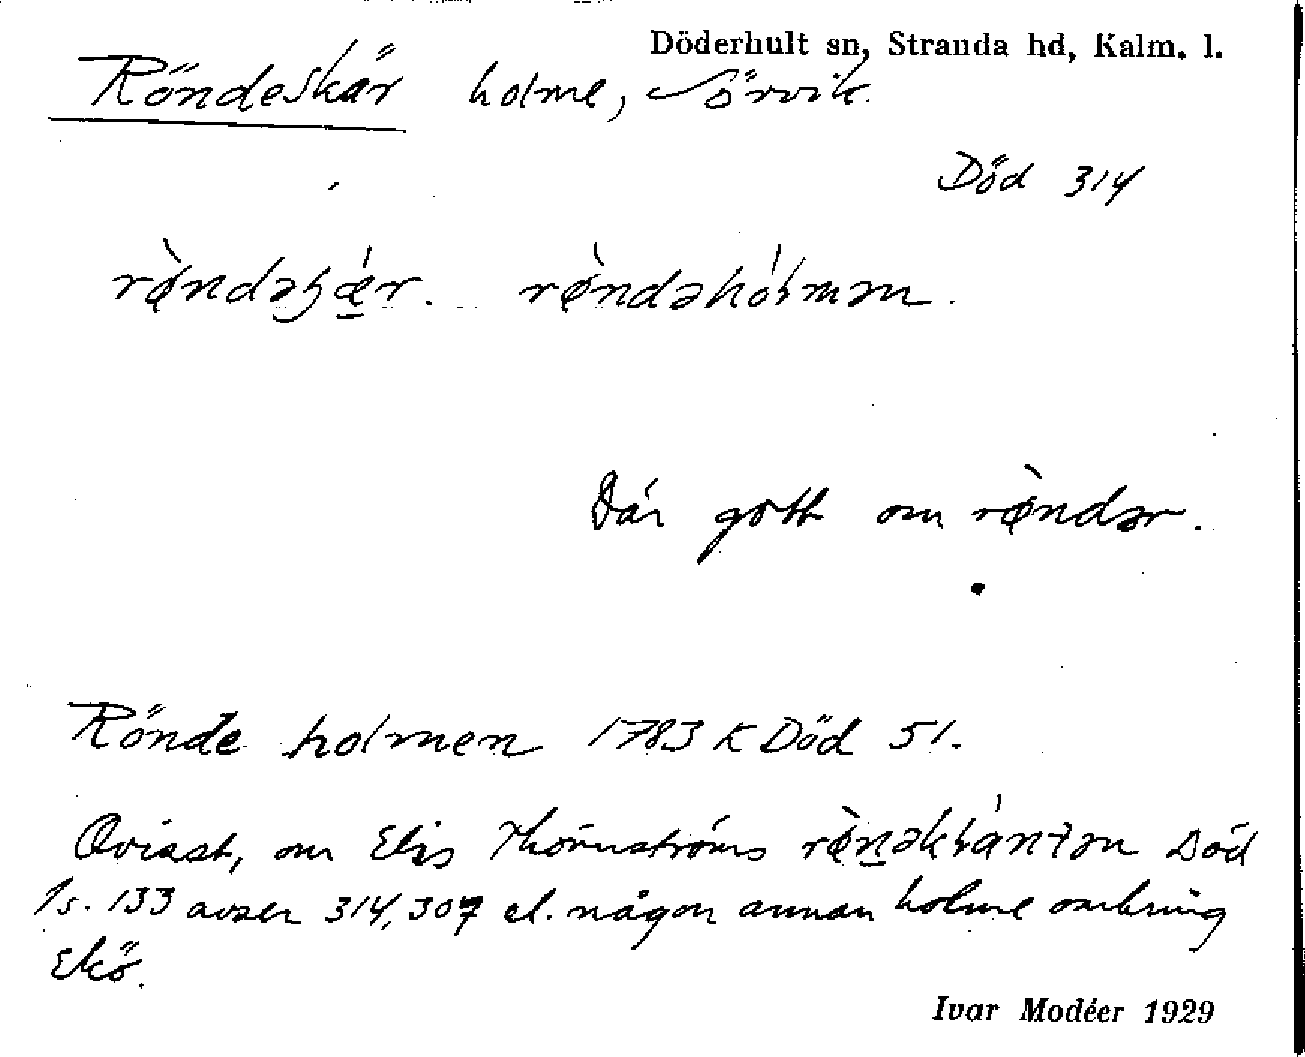 Döderhult sn, Stranda hd, Kalm. l.
Röndeskär holme, Sörvik.
Död 314
Där gott om rø̀ndər.
Rönde holmen 1783 K Död 51.
Ovisst, om Elis Thörnströms Död
1 s. 133 avser 314, 307 el. någon annan holme omkring
Ekö.
Ivar Modéer 1929